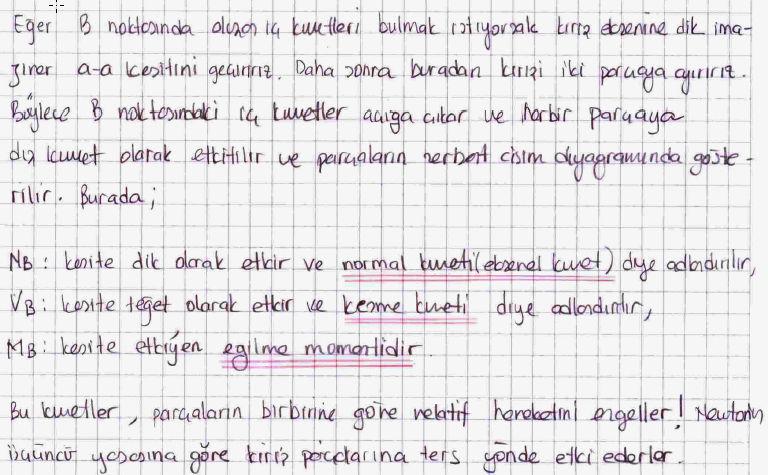 Eğer B noktasında oluşan iç kuvvetleri bulmak istiyorsak kiriş eksenine dik ima-
jiner a-a kesitini geçiririz. Daha sonra buradan kirişi iki parçaya ayırırız.
Böylece B noktasındaki iç kuvvetler açığa çıkar ve herbir parçaya
dış kuvvet olarak etkitilir ve parçaların serbest cisim diyagramında göste-
rilir. Burada;
NB: kesite dik olarak etkir ve normal kuvveti (eksenel kuvvet) diye adlandırılır,
VB: kesite teğet olarak etkir ve kesme kuvveti diye adlandırılır,
MB: kesite etkiyen eğilme momentidir.
Bu kuvvetler, parçaların birbirine göre relatif hareketini engeller! Newton'ın
üçüncü yasasına göre kiriş parçalarına ters yönde etki ederler.